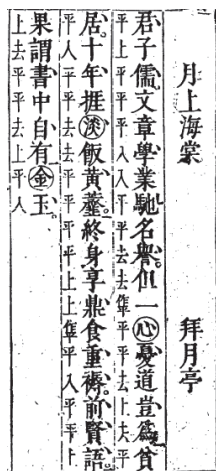 月上海棠 拜月亭
君子儒。文章學業馳名譽。但一心憂道豈爲貧
平上平平平入入平平去去隼平平去上去平
居。十年捱淡飯黃虀。終身享鼎食重褥。前賢語。
平入平平去去平平平平上上隼平入平平上
果謂書中自有金玉。
上去平平去上平入